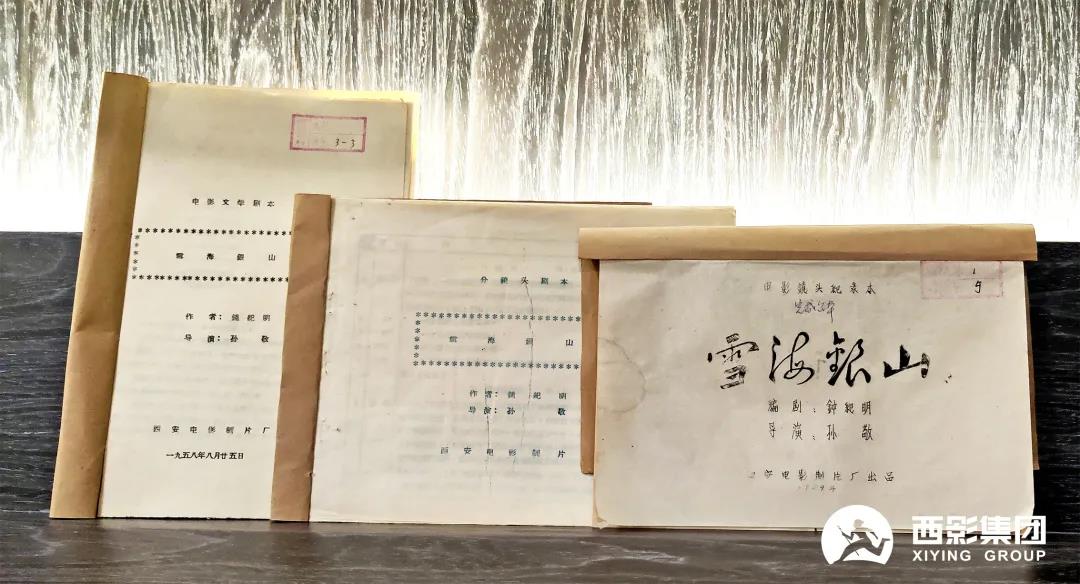 3-3
电影文学剧本
雪海銀山
作者：鍾紀明
导演：孙 敬
西安电影制片厂
一九五八年八月廿五日
分鏡头剧本
雪海銀山
作者：鍾紀明
导演：孙 敬
西安电影制片
1
5
电影镜头纪录本
完成台本
雪海銀山
编剧：钟纪明
导演：孙 敬
西安电影制片厂出品
西影集团
XIYING GROUP